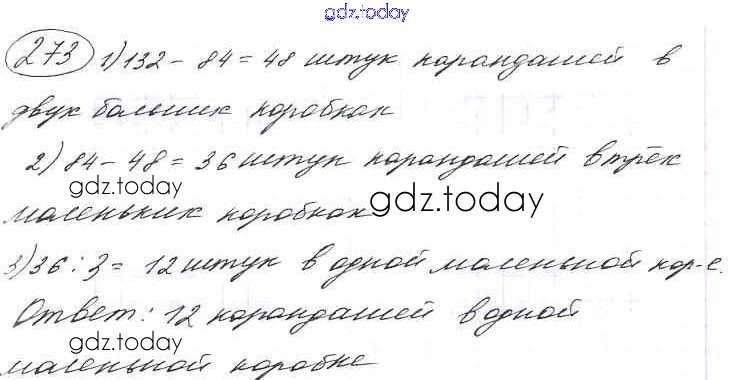 gdz.today
273 1) 132 - 84 = 48 штук карандашей в
двух больших коробках
2) 84 - 48 = 36 штук карандашей в трёх
gdz.today
маленьких коробках gdz.today
3) 36 : 3 = 12 штук в одной маленькой кор-е.
Ответ: 12 карандашей в одной
gdz.today
маленькой коробке